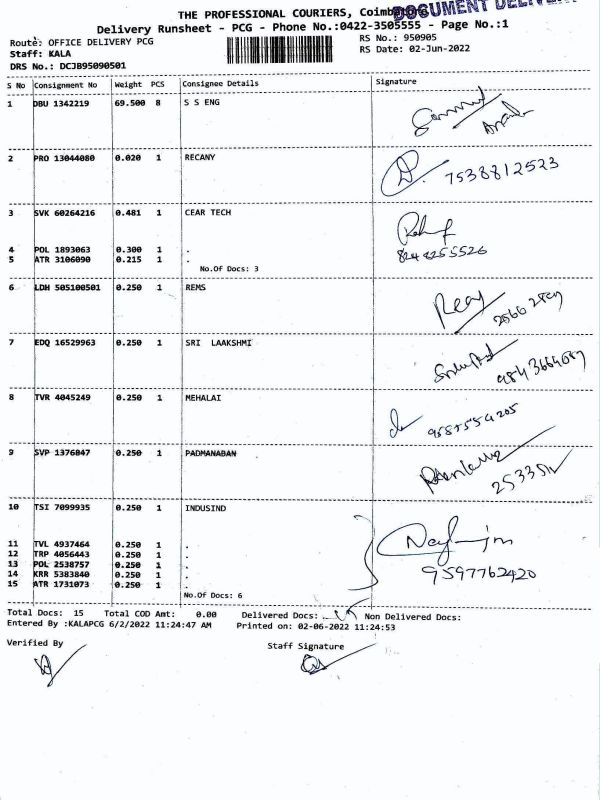 DOCUMENT DELIVER
THE PROFESSIONAL COURIERS, Coimbatore
Delivery Runsheet - PCG - Phone No.:0422-3505555 - Page No.:1
Route: OFFICE DELIVERY PCG RS No.: 950905
Staff: KALA RS Date: 02-Jun-2022
DRS No.: DCJB95090501
S No Consignment No Weight PCS Consignee Details Signature
1 DBU 1342219 69.500 8 S S ENG
2 PRO 13044080 0.020 1 RECANY
7538812523
3 SVK 60264216 0.481 1 CEAR TECH
4 POL 1893063 0.300 1 .
5 ATR 3106090 0.215 1 .
No.Of Docs: 3
6 LDH 505100501 0.250 1 REMS
7 EDQ 16529963 0.250 1 SRI LAAKSHMI
8 TVR 4045249 0.250 1 MEHALAI
9 SVP 1376847 0.250 1 PADMANABAN
10 TSI 7099935 0.250 1 INDUSIND
11 TVL 4937464 0.250 1 .
12 TRP 4056443 0.250 1 .
13 POL 2538757 0.250 1 .
14 KRR 5383840 0.250 1 .
15 ATR 1731073 0.250 1 .
9597762420
No.Of Docs: 6
Total Docs: 15 Total COD Amt: 0.00 Delivered Docs: Non Delivered Docs:
Entered By :KALAPCG 6/2/2022 11:24:47 AM Printed on: 02-06-2022 11:24:53
Verified By Staff Signature